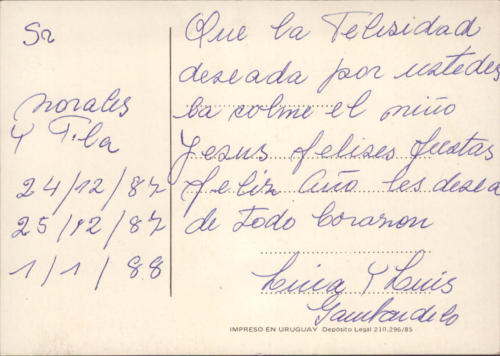 Sr
Morales
Y Flia
24/12/87
25/12/87
1/1/88
Que la Felisidad
deseada por ustedes
la colme el niño
Jesus felises fiestas
feliz Año les desea
de todo Corazon
Luis
IMPRESO EN URUGUAY Depósito Legal 210.296/85